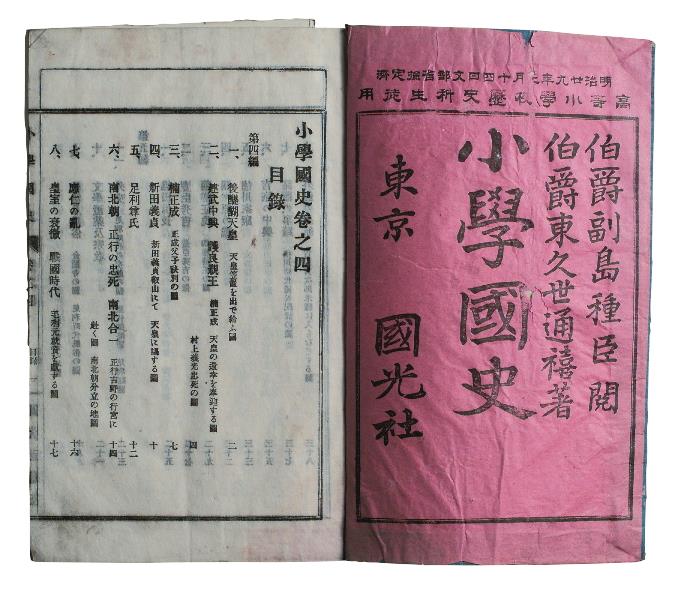 明治廿九年七月十四日文部省檢定濟
高等小學校歷史科生徒用
伯爵副島種臣閲
伯爵東久世通禧著
小學國史
東京 國光社
小學國史卷之四
目錄
第四編
一、後醍醐天皇 天皇笠置を出で給ふ圖 二
二、建武中興 護良親王 楠正成 天皇の還幸を奉迎する圖
村上義光忠死の圖 四
三、楠正成 正成父子訣別の圖 七
四、新田義貞 新田義貞叡山にて 天皇に謁する圖 十
五、足利尊氏 十二
六、南北朝 正行の忠死 南北合一 正行吉野の行宮に
赴く圖 南北朝分立の地圖 十四
七、應仁の亂 十六
八、皇室の衰微 戰國時代 毛利元就資を獻する圖 十七